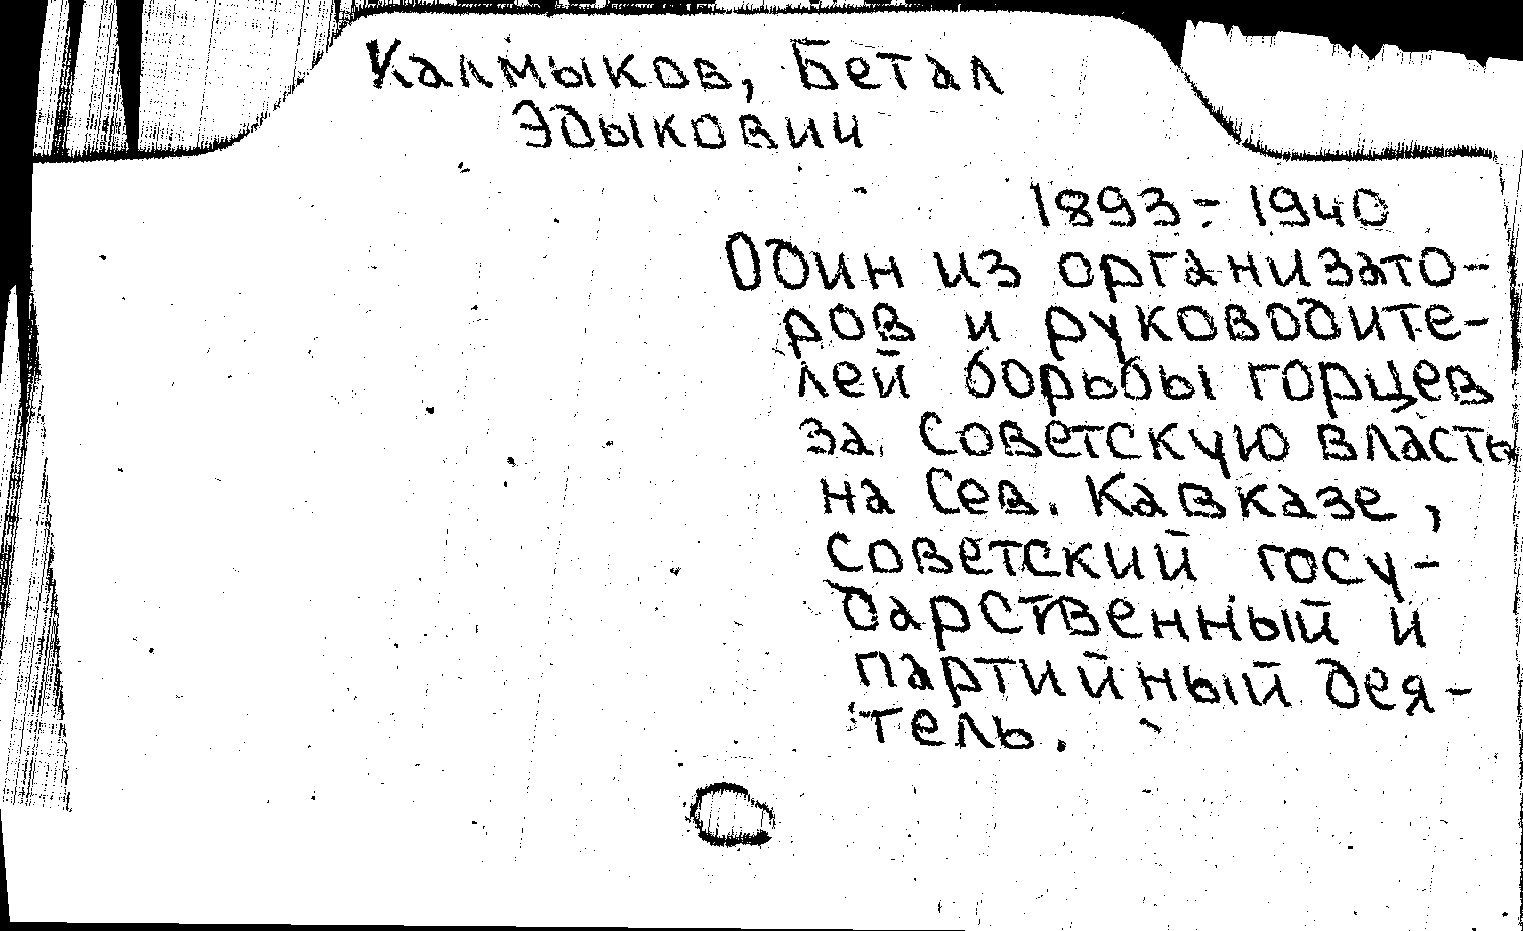 Калмыков, Бетал
Эдыкович
1893 - 1940
Один из организато-
ров и руководите-
лей борьбы горцев
за Советскую власть
на Сев. Кавказе,
советский госу-
дарственный и
партийный дея-
тель.